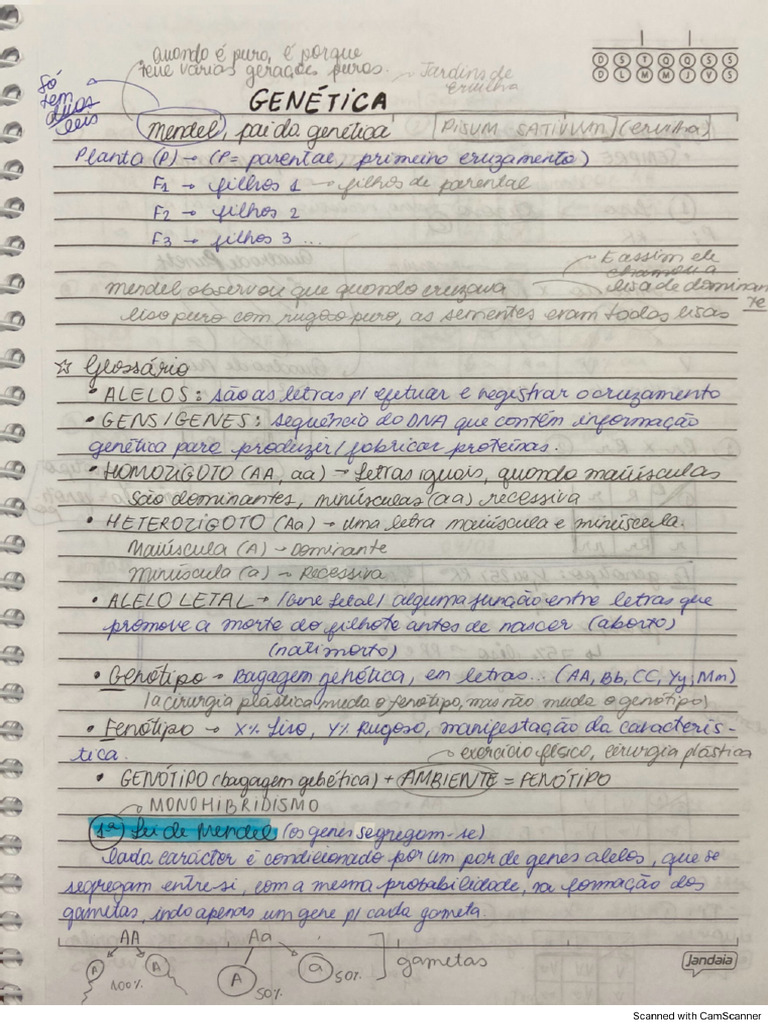 Quando é puro, é porque
teve várias gerações puras.
Jardins de
ervilha
Só
tem
duas
leis
GENÉTICA
D S T Q Q S S
D L M M J V S
Mendel, pai da genética
PISUM SATIVUM (ervilha)
Planta (P) → (P = parental, primeiro cruzamento)
F1 → filhos 1 → filhos de parental
F2 → filhos 2
F3 → filhos 3 ...
E assim ele
chamou a
lisa de dominan
te
Mendel observou que quando cruzava
liso puro com rugoso puro, as sementes eram todas lisas
☆ Glossário
• ALELOS: são as letras p/ efetuar e registrar o cruzamento
• GENS/GENES: sequência do DNA que contém informação
genética para produzir/fabricar proteínas.
• HOMOZIGOTO (AA, aa) → Letras iguais, quando maiúsculas
são dominantes, minúsculas (aa) recessiva
• HETEROZIGOTO (Aa) → uma letra maiúscula e minúscula.
Maiúscula (A) → Dominante
Minúscula (a) → Recessiva
• ALELO LETAL → /Gene letal/ alguma junção entre letras que
promove a morte do filhote antes de nascer (aborto)
(natimorto)
• Genótipo → Bagagem genética, em letras... (AA, Bb, CC, Yy, Mm)
/a cirurgia plástica muda o fenótipo, mas não muda o genótipo/
• Fenótipo → X% Liso, Y% Rugoso, manifestação da caracterís-
tica.
exercício físico, cirurgia plástica
• GENÓTIPO (bagagem gebética) + AMBIENTE = FENÓTIPO
MONOHIBRIDISMO
1ª Lei de Mendel (os genes segregam-se)
Cada carácter é condicionado por um par de genes alelos, que se
segregam entre si, com a mesma probabilidade, na formação dos
gametas, indo apenas um gene p/ cada gameta.
AA Aa
A A 100% A 50% a 50% gametas
Jandaia
Scanned with CamScanner